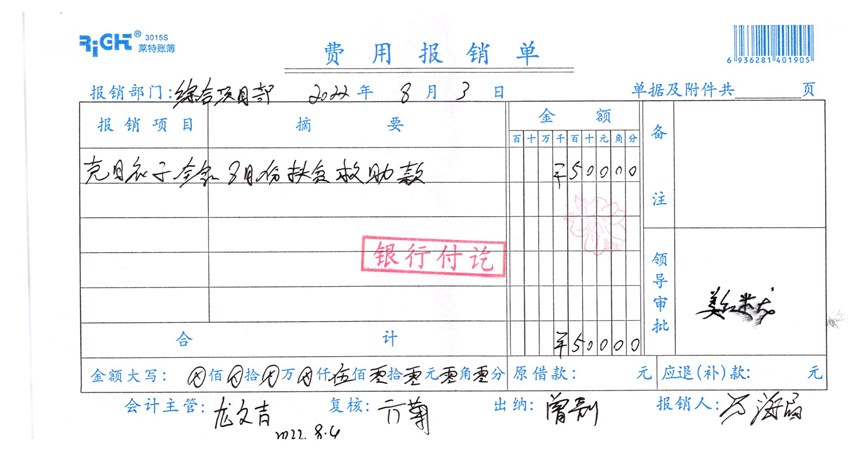 RiGHT® 3015S
莱特账簿
费用报销单
6 936281 401905
报销部门:综合项目部 2022年8月3日 单据及附件共 页
报销项目 摘要 金额 备注
百十万千百十元角分
8月份扶贫救助款 ¥50000
银行付讫
领导审批
合计 ¥50000
金额大写: ⊗佰⊗拾⊗万⊗仟伍佰零拾零元零角零分 原借款: 元 应退(补)款: 元
会计主管:龙文吉 复核: 出纳:曾 报销人:
2022.8.4